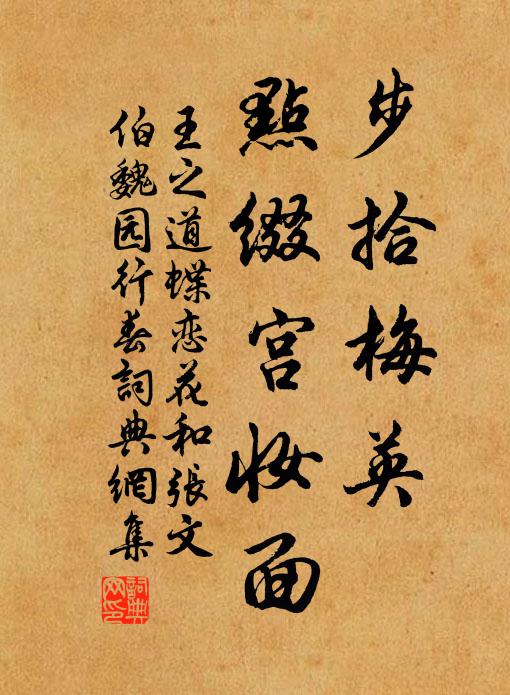 步拾梅英
點缀宫妆面
王之道蝶恋花和張文
伯魏园行春詞典網集
詞典网印